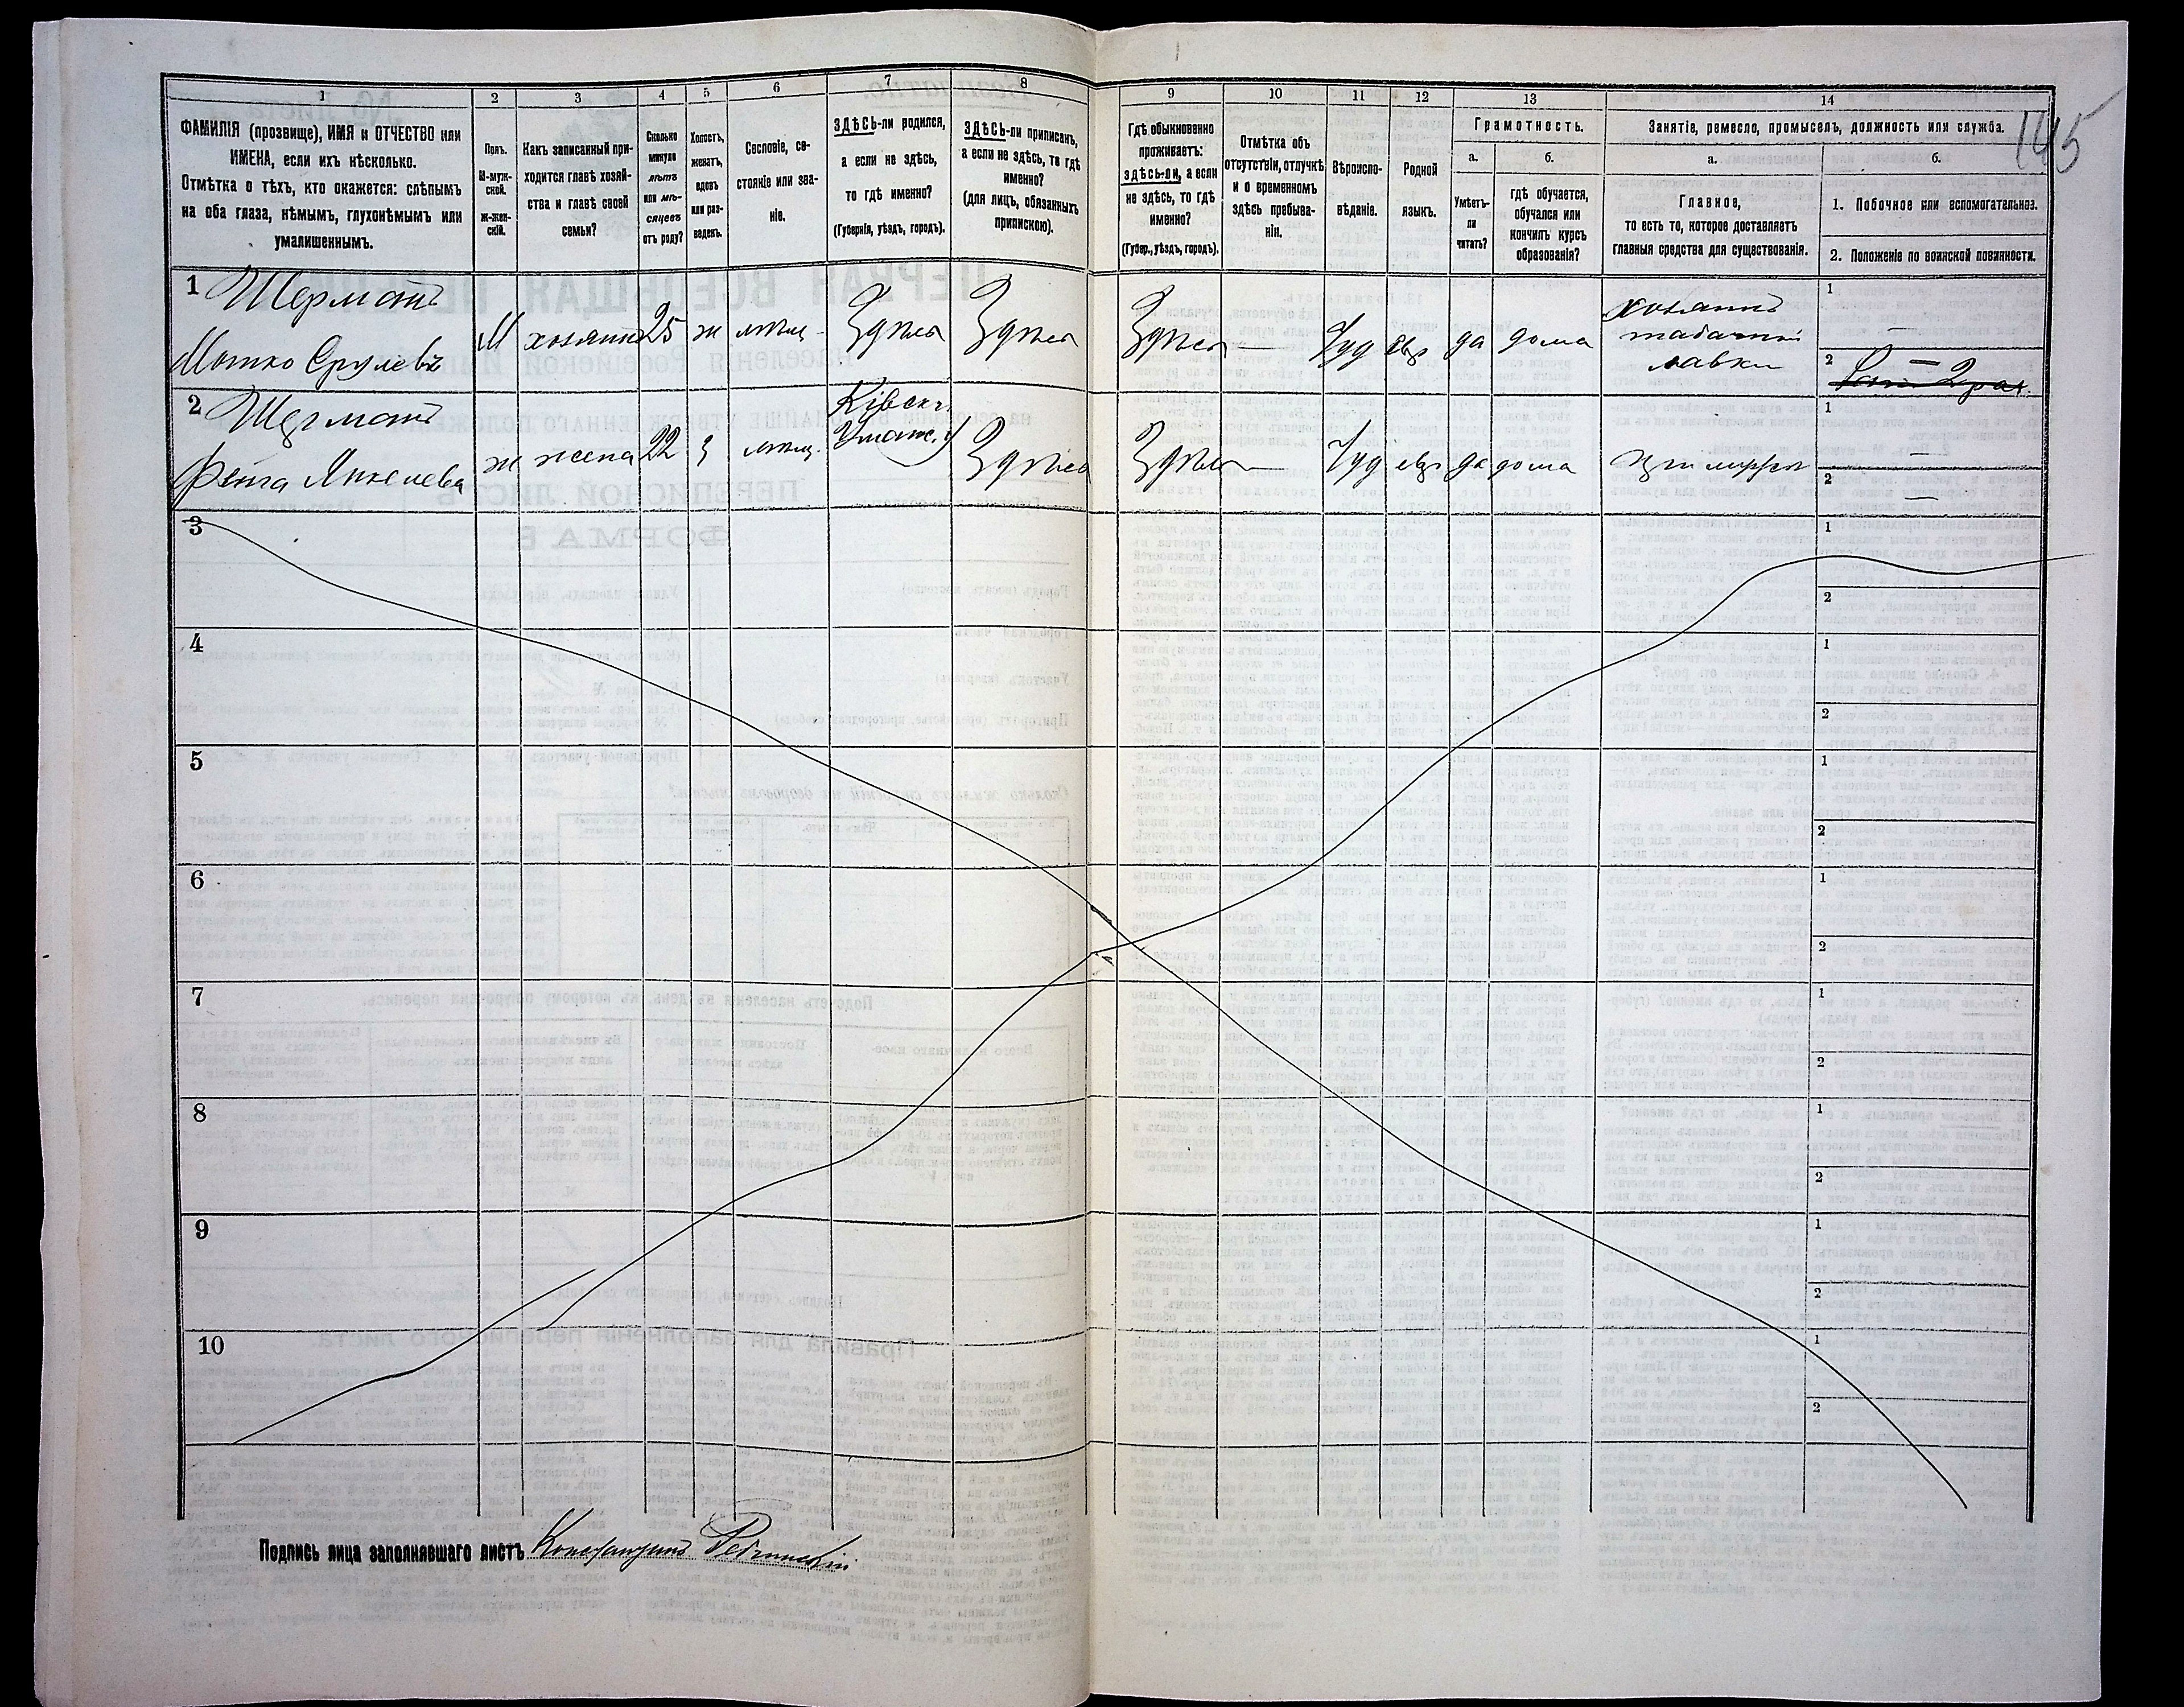 1
2
3
4
5
6
7
8
9
10
11
12
13
14
145
ФАМИЛІЯ (прозвище), ИМЯ и ОТЧЕСТВО или
ИМЕНА, если ихъ нѣсколько.
Отмѣтка о тѣхъ, кто окажется: слѣпымъ
на оба глаза, нѣмымъ, глухонѣмымъ или
умалишеннымъ.
Полъ.
М-муж-
ской.
Ж-жен-
скій.
Какъ записанный при-
ходится главѣ хозяй-
ства и главѣ своей
семьи?
Сколько
минуло
лѣтъ
или мѣ-
сяцевъ
отъ роду?
Холостъ,
женатъ,
вдовъ
или раз-
веденъ.
Сословіе, со-
стояніе или зва-
ніе.
ЗДѢСЬ-ли родился,
а если не здѣсь,
то гдѣ именно?
(Губернія, уѣздъ, городъ).
ЗДѢСЬ-ли приписанъ,
а если не здѣсь, то гдѣ
именно?
(для лицъ, обязанныхъ
припискою).
Гдѣ обыкновенно
проживаетъ:
здѣсь-ли, а если
не здѣсь, то гдѣ
именно?
(Губер., уѣздъ, городъ).
Отмѣтка объ
отсутствіи, отлучкѣ
и о временномъ
здѣсь пребыва-
ніи.
Вѣроиспо-
вѣданіе.
Родной
языкъ.
Грамотность.
а.
б.
Умѣетъ-
ли
читать?
гдѣ обучается,
обучался или
кончилъ курсъ
образованія?
Занятіе, ремесло, промыселъ, должность или служба.
а.
б.
Главное,
то есть то, которое доставляетъ
главныя средства для существованія.
1. Побочное или вспомогательное.
2. Положеніе по воинской повинности.
1 Шерманъ
Мошко Срулевъ
М хозяинъ 25 ж мѣщ. Здѣсь Здѣсь Здѣсь — Іуд евр да дома
хозяинъ
табачной
лавки
1 —
2 —
2 Шерманъ
Фейга Янкелева
ж жена 22 з мѣщ.
Кіевск. г.
Уманс. у
Здѣсь Здѣсь — Іуд евр да дома при мужѣ
1 —
2 —
3
1
2
4
1
2
5
1
2
6
1
2
7
1
2
8
1
2
9
1
2
10
1
2
Подпись лица заполнявшаго листъ Константинъ